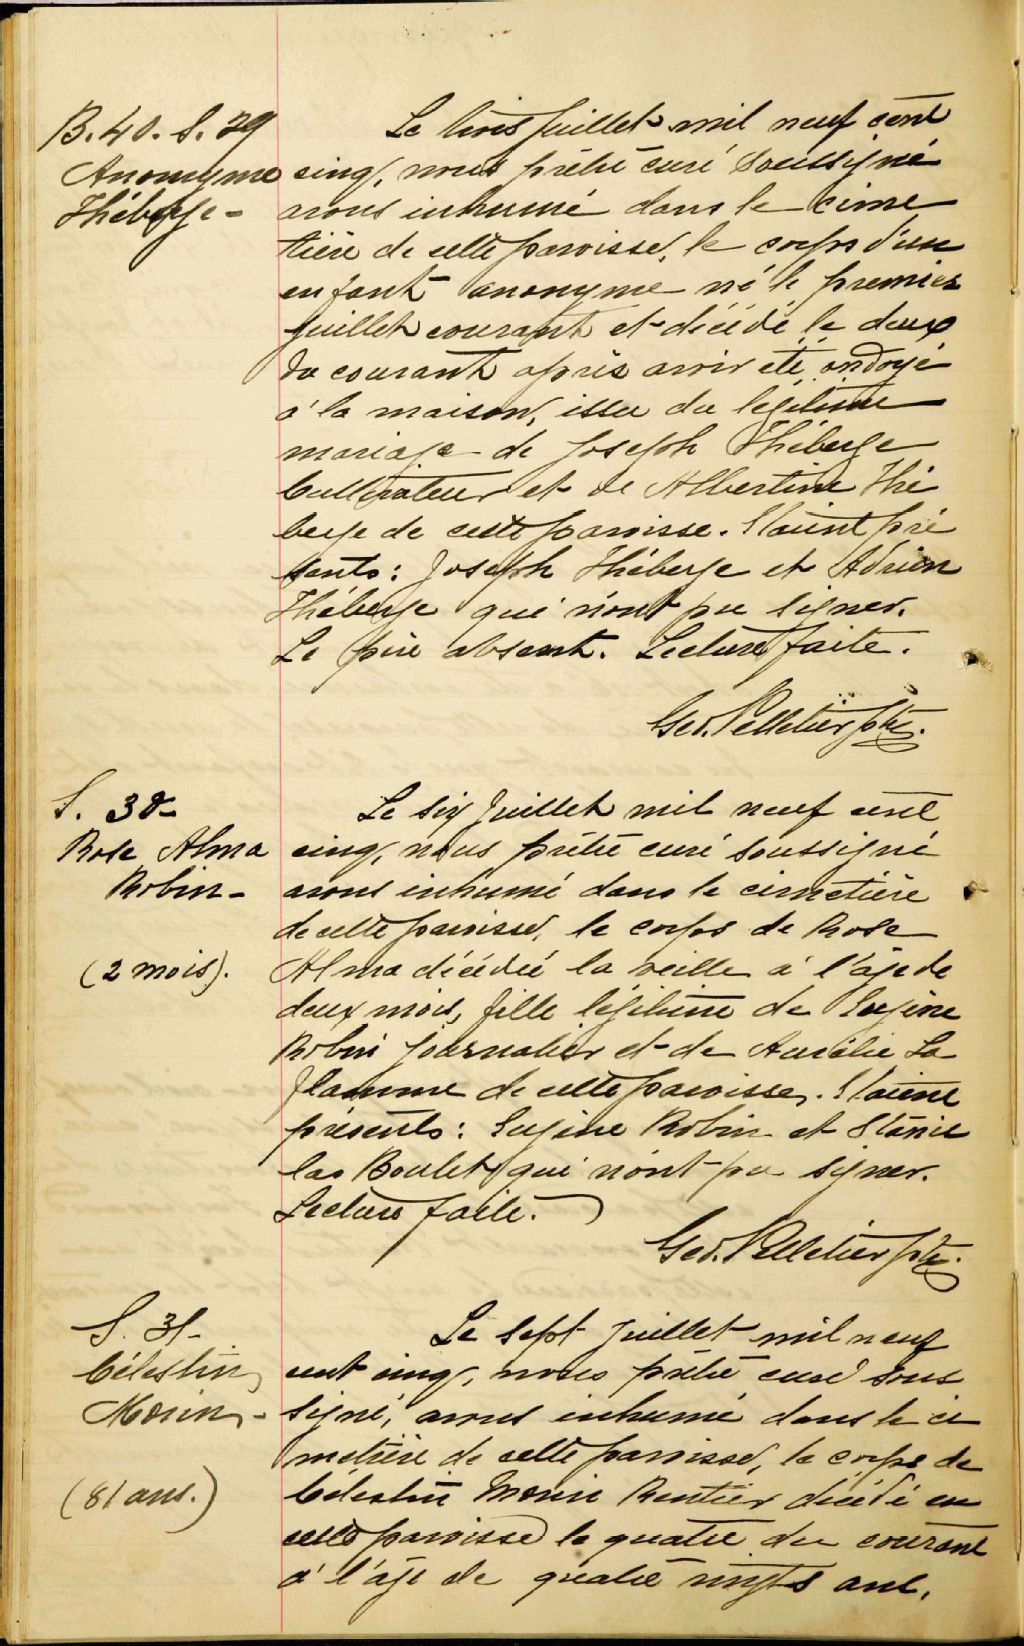 B. 40. S. 29
Anonyme
Théberge -
Le trois Juillet mil neuf cent
cinq, nous prêtre curé soussigné
avons inhumé dans le cime
tière de cette paroisse, le corps d'un
enfant anonyme né le premier
Juillet courant et décédé le deux
du courant après avoir été ondoyé
à la maison, issu du légitime
mariage de Joseph Théberge
Cultivateur et de Albertine Thé
berge de cette paroisse. Etaient pré
sents: Joseph Théberge et Adrien
Théberge qui n'ont pu signer.
Le père absent. Lecture faite.
Geo. Pelletier ptre.
S. 30 -
Rose Alma
Robin -
(2 mois).
Le six Juillet mil neuf cent
cinq, nous prêtre curé soussigné
avons inhumé dans le cimetière
de cette paroisse, le corps de Rose
Alma décédée la veille à l'âge de
deux mois, fille légitime de Eugène
Robin journalier et de Aurélie La
flamme de cette paroisse. Etaient
présents: Eugène Robin et Stanis
las Boulet qui n'ont pu signer.
Lecture faite.
Geo. Pelletier ptre.
S. 31 -
Célestin
Morin -
(81 ans.)
Le sept Juillet mil neuf
cent cinq, nous prêtre curé sous
signé, avons inhumé dans le ci
metière de cette paroisse, le corps de
Célestin Morin Rentier décédé en
cette paroisse le quatre du courant
à l'âge de quatre vingts ans,